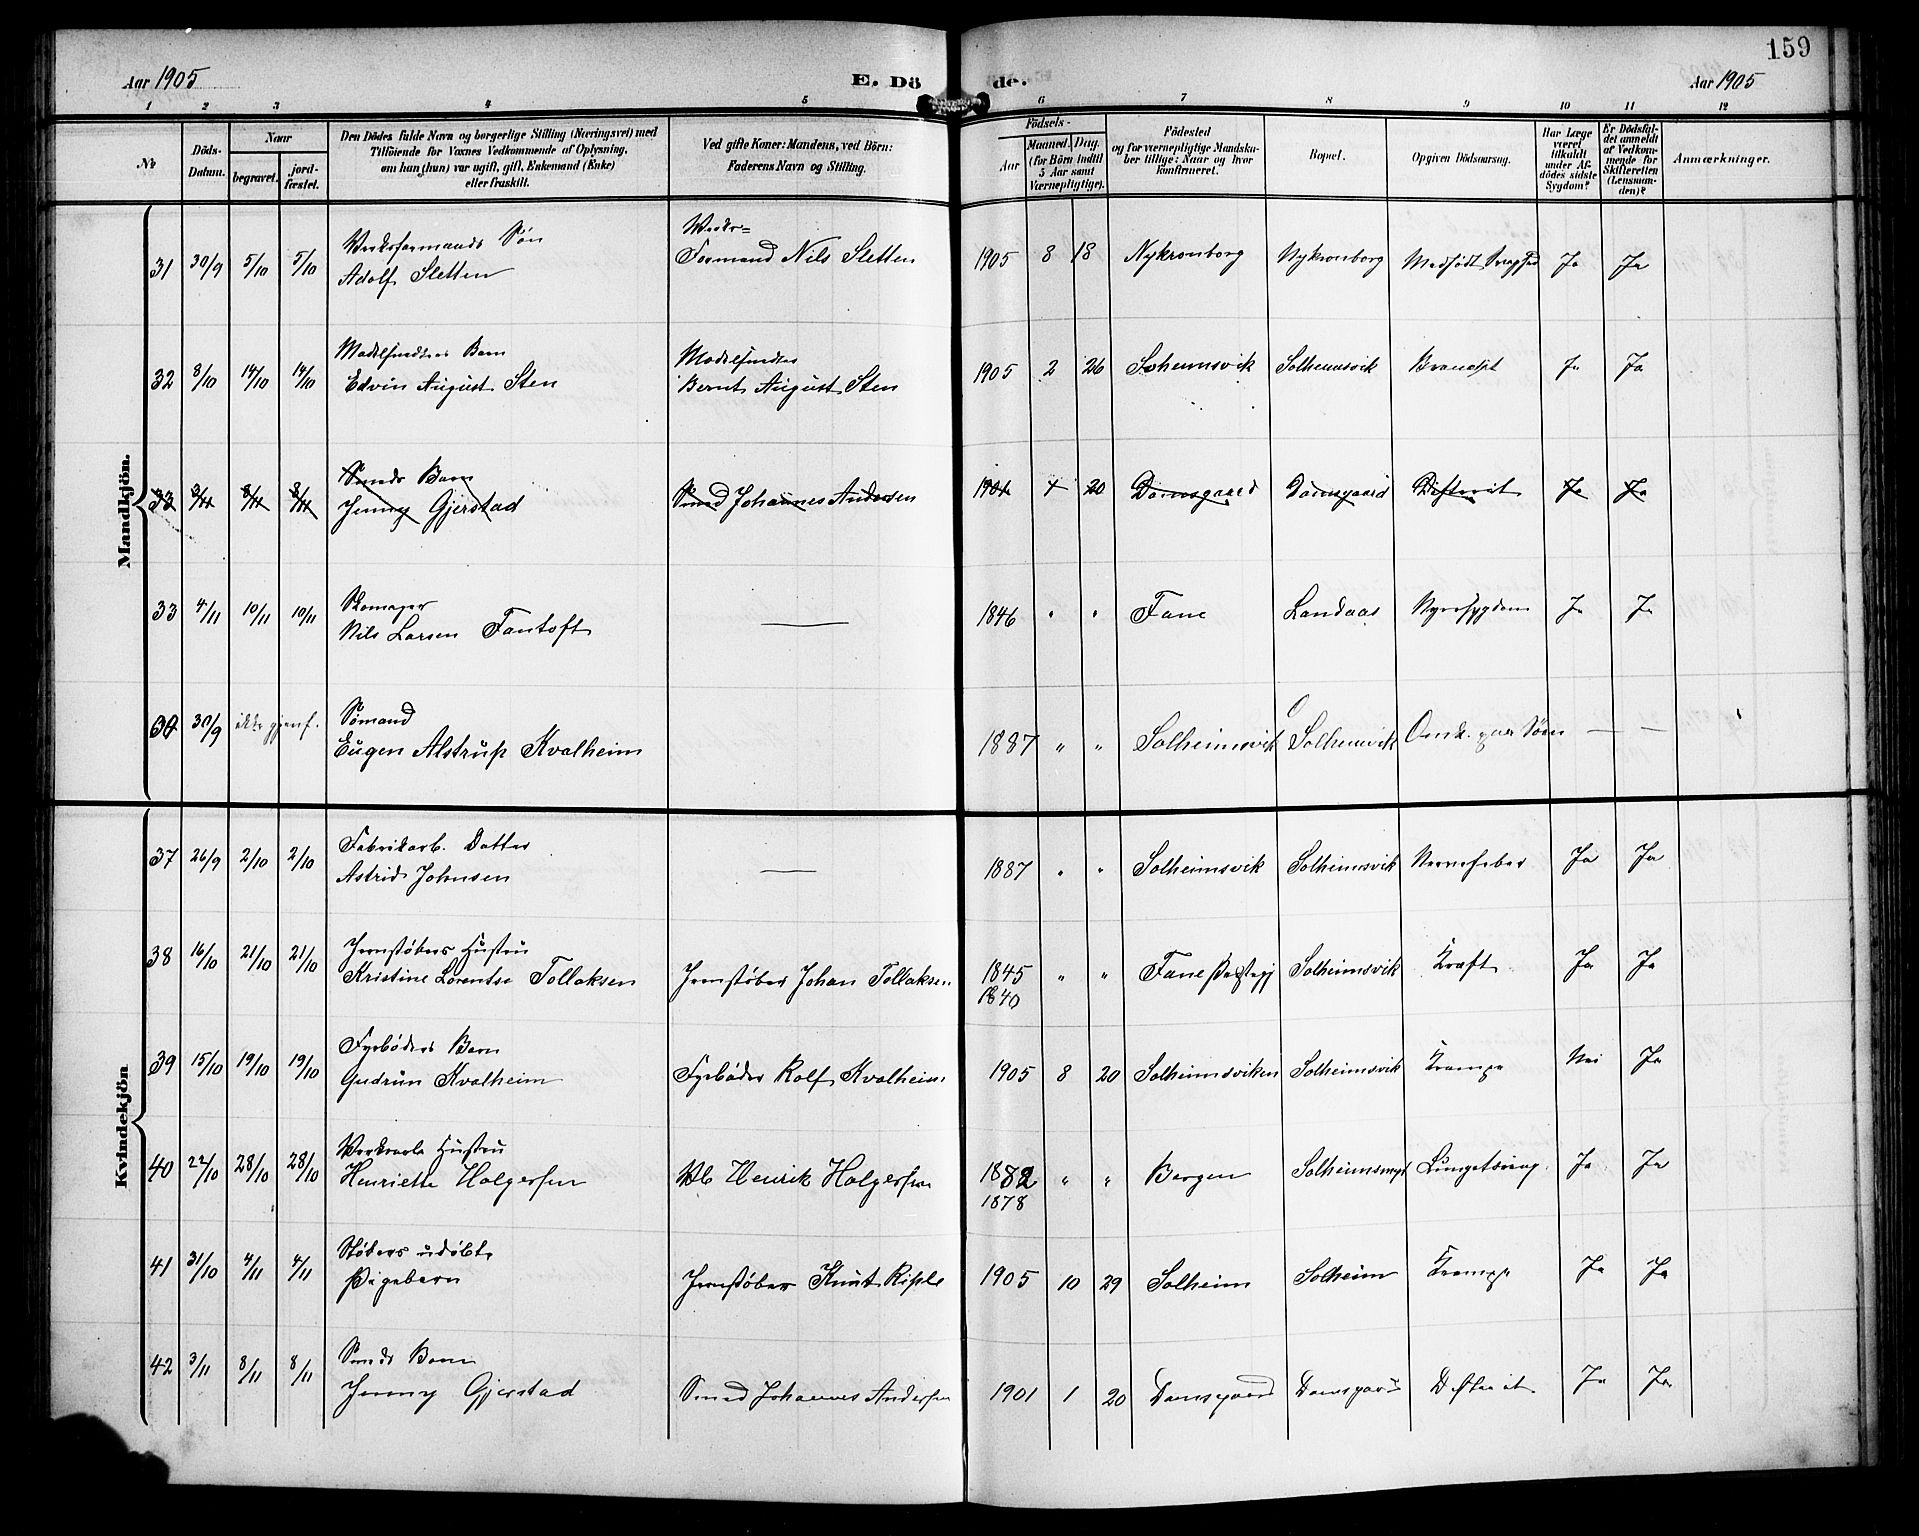 159
Aar 1905
E. Dö de.
Aar 1905
1 2 3 4 5 6 7 8 9 10 11 12
No
Döds-Datum.
Naar
begravet.
jord-fæstet.
Den Dödes fulde Navn og borgerlige Stilling (Næringsvei) med
Tilföiende for Voxnes Vedkommende af Oplysning,
om han (hun) var ugift, gift, Enkemand (Enke)
eller fraskilt.
Ved gifte Koner: Mandens, ved Börn:
Faderens Navn og Stilling.
Födsels-
Aar
Maaned. Dag.
(for Börn indtil
5 Aar samt
Værnepligtige).
Födested
og for værnepligtige Mandska-
ber tillige: Naar og hvor
konfirmeret.
Bopæl.
Opgiven Dödsaarsag.
Har Læge
været
tilkaldt
under Af-
dödes sidste
Sygdom?
Er Dödsfal-
det anmeldt
af Vedkom-
mende for
Skifteretten
(Lensman-
den)?
Anmærkninger.
Mandkjön.
Verksformands Søn Verks=
31 30/9 5/10 5/10 Adolf Sletten Formand Nils Sletten 1905 8 18 Nykronborg Nykronborg Medfødt Svaghed Ja Ja
Barn
32 8/10 14/10 14/10 Edvin August Sten Bernt August Sten 1905 2 26 Soheimsvik Solheimsvik Ja Ja
Smeds Barn
33 3/11 8/11 8/11 Jenny Gjerstad Smed Johannes Andersen 1901 1 20 Damsgaard Damsgaard Difterit Ja Ja
Skomager
33 4/11 10/11 10/11 Nils Larsen Fantoft — 1846 " " Fane Landaas Nyresygdom Ja Ja
Sømand
30/9 ikke gjenf. Eugen Alstrup Kvalheim 1887 " " Solheimsvik Solheimsvik Omk. paa Søen — —
Kvindekjön
Fabrikarb. Datter
37 26/9 2/10 2/10 Astrid Johnsen — 1887 " " Solheimsvik Solheimsvik Nervefeber Ja Ja
Jernstøbers Hustru
38 16/10 21/10 21/10 Kristine Lorentse Tollaksen Jernstøber Johan Tollaksen 1845 " " Fane Solheimsvik Kræft Ja Ja
1840
Fyrbøders Barn
39 15/10 19/10 19/10 Gudrun Kvalheim Fyrbøder Rolf Kvalheim 1905 8 20 Solheimsviken Solheimsvik Krampe Nei Ja
Hustru
40 22/10 28/10 28/10 Henriette Holgersen Henrik Holgersen 1882 " " Bergen Ja Ja
1878
Støbers udøbte
41 31/10 4/11 4/11 Pigebarn Jernstøber Knut 1905 10 29 Solheim Solheim Krampe Ja Ja
Smeds Barn
42 3/11 8/11 8/11 Jenny Gjerstad Smed Johannes Andersen 1901 1 20 Damsgaard Damsgaard Difterit Ja Ja